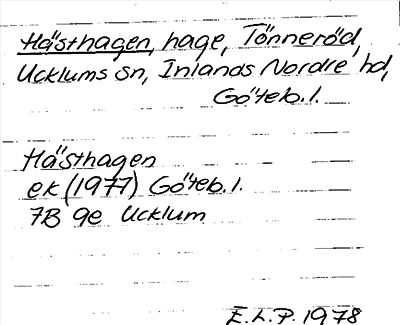 Hästhagen, hage, Tönneröd,
Ucklums sn, Inlands Nordre hd,
Göteb. l.
Hästhagen
ek (1977) Göteb. l.
7B 9e Ucklum
E.L.P. 1978